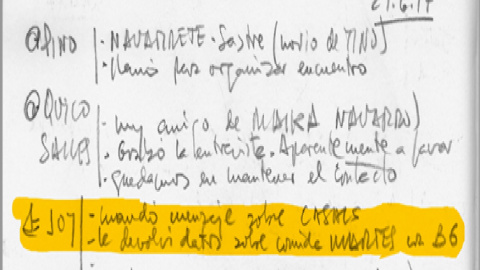 21.6.17
@PINO · NAVARRETE. Sastre (novio de TINO)
· llamó para organizar encuentro
@QUICO · muy amigo de MAIKA NAVARRO)
SALLES · Grabó la entrevista. Aparentemente a favor
· quedamos en mantener el contacto
£ JO7 · mandó mensaje sobre CASALS
· le devolví datos sobre comida MARTES con B6